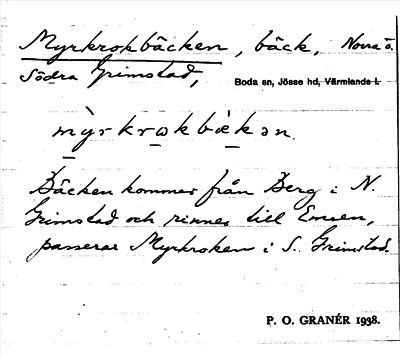 Myrkrokbäcken, bäck, Norra o.
Södra Grimstad, Boda sn, Jösse hd, Värmlands l.
mỳrkrokbækən
Bäcken kommer från Berg i N.
Grimstad och rinner till Emsen,
passerar Myrkroken i S. Grimstad.
P. O. GRANÉR 1938.